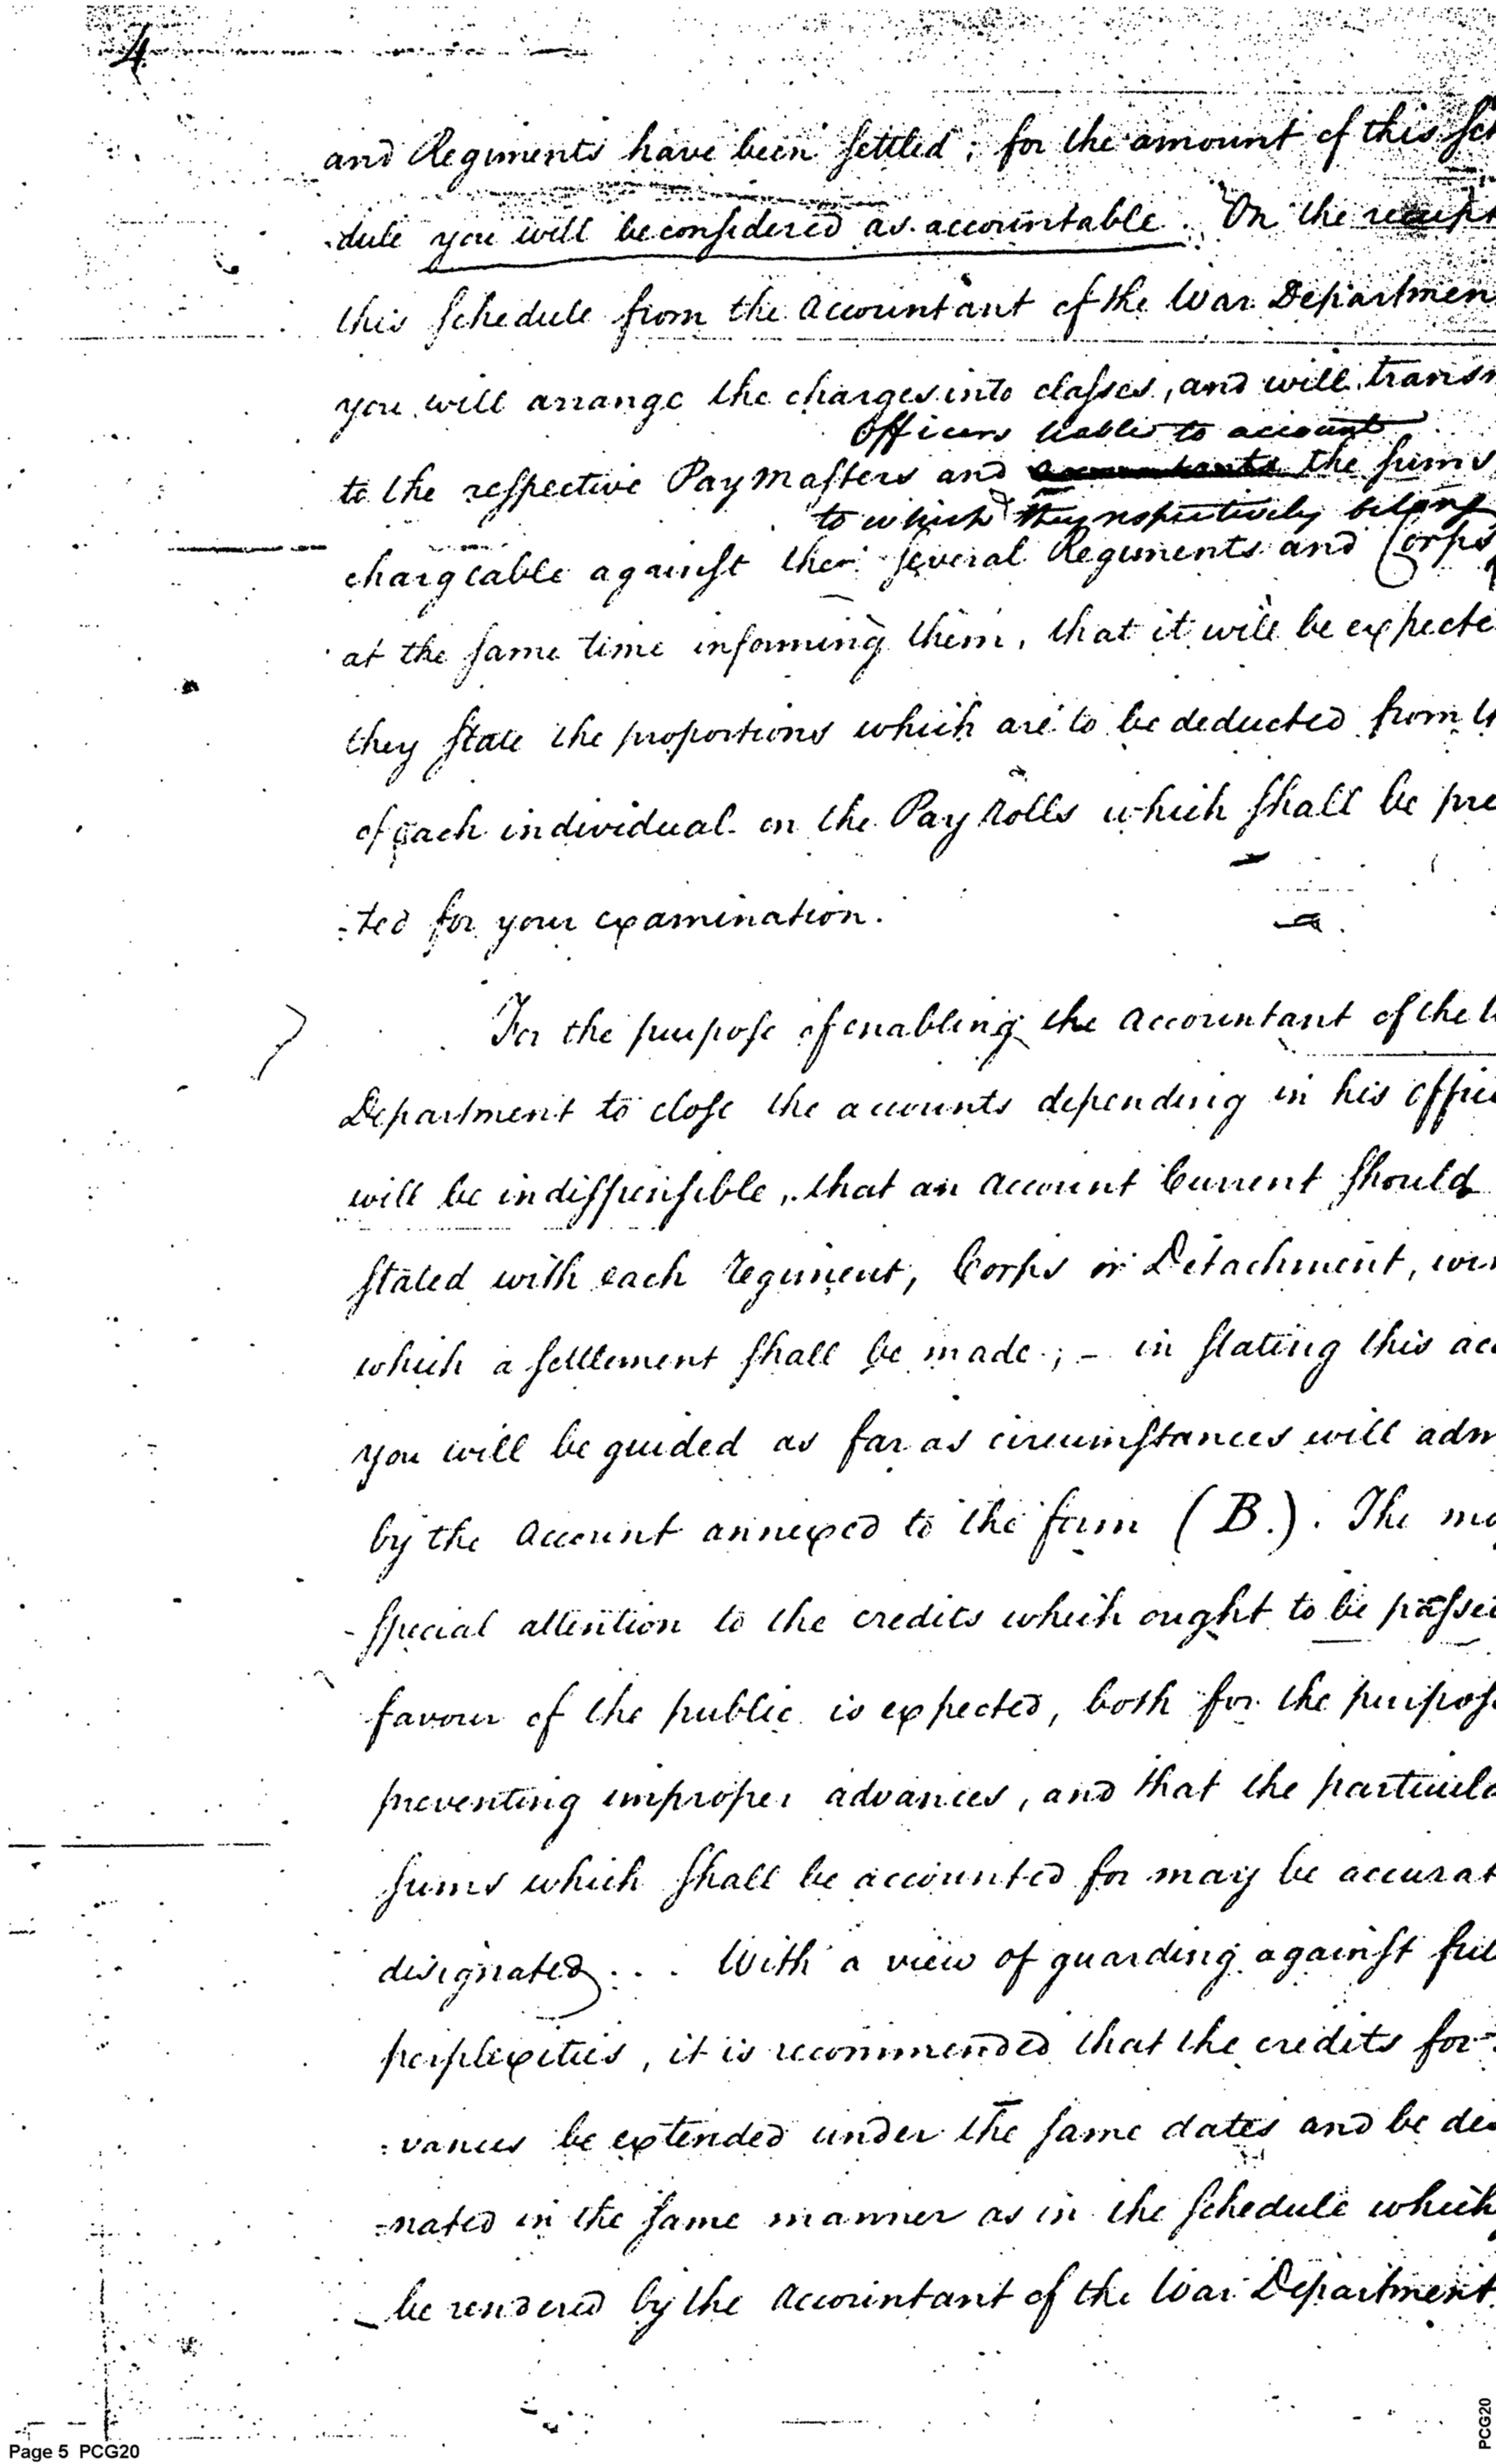 4
and Regiments have been settled; for the amount of this Sch
-dule you will be considered as accountable. On the receipt
this Schedule from the Accountant of the War Departmen
you will arrange the charges into classes, and will transm
Officers liable to account
to the respective Pay Masters and the sums
to which they respectively belong
chargeable against their several Regiments and Corps
at the same time informing them, that it will be expecte
they state the proportions which are to be deducted from th
of each individual on the Pay Rolls which shall be pre
=ted for your examination.
For the purpose of enabling the Accountant of the W
Department to close the accounts depending in his offic
will be indispensible, that an Account Current should
stated with each Regiment, Corps or Detachment, wi
which a settlement shall be made; – in stating this acc
you will be guided as far as circumstances will adm
by the Account annexed to the form (B.). The mo
special attention to the credits which ought to be passed
favour of the public is expected, both for the purpose
preventing improper advances, and that the particula
sums which shall be accounted for may be accurat
designated... With a view of guarding against fut
perplexities, it is recommended that the credits for
=vances be extended under the same dates and be des
=nated in the same manner as in the Schedule which
be rendered by the Accountant of the War Department
Page 5 PCG20
PCG20